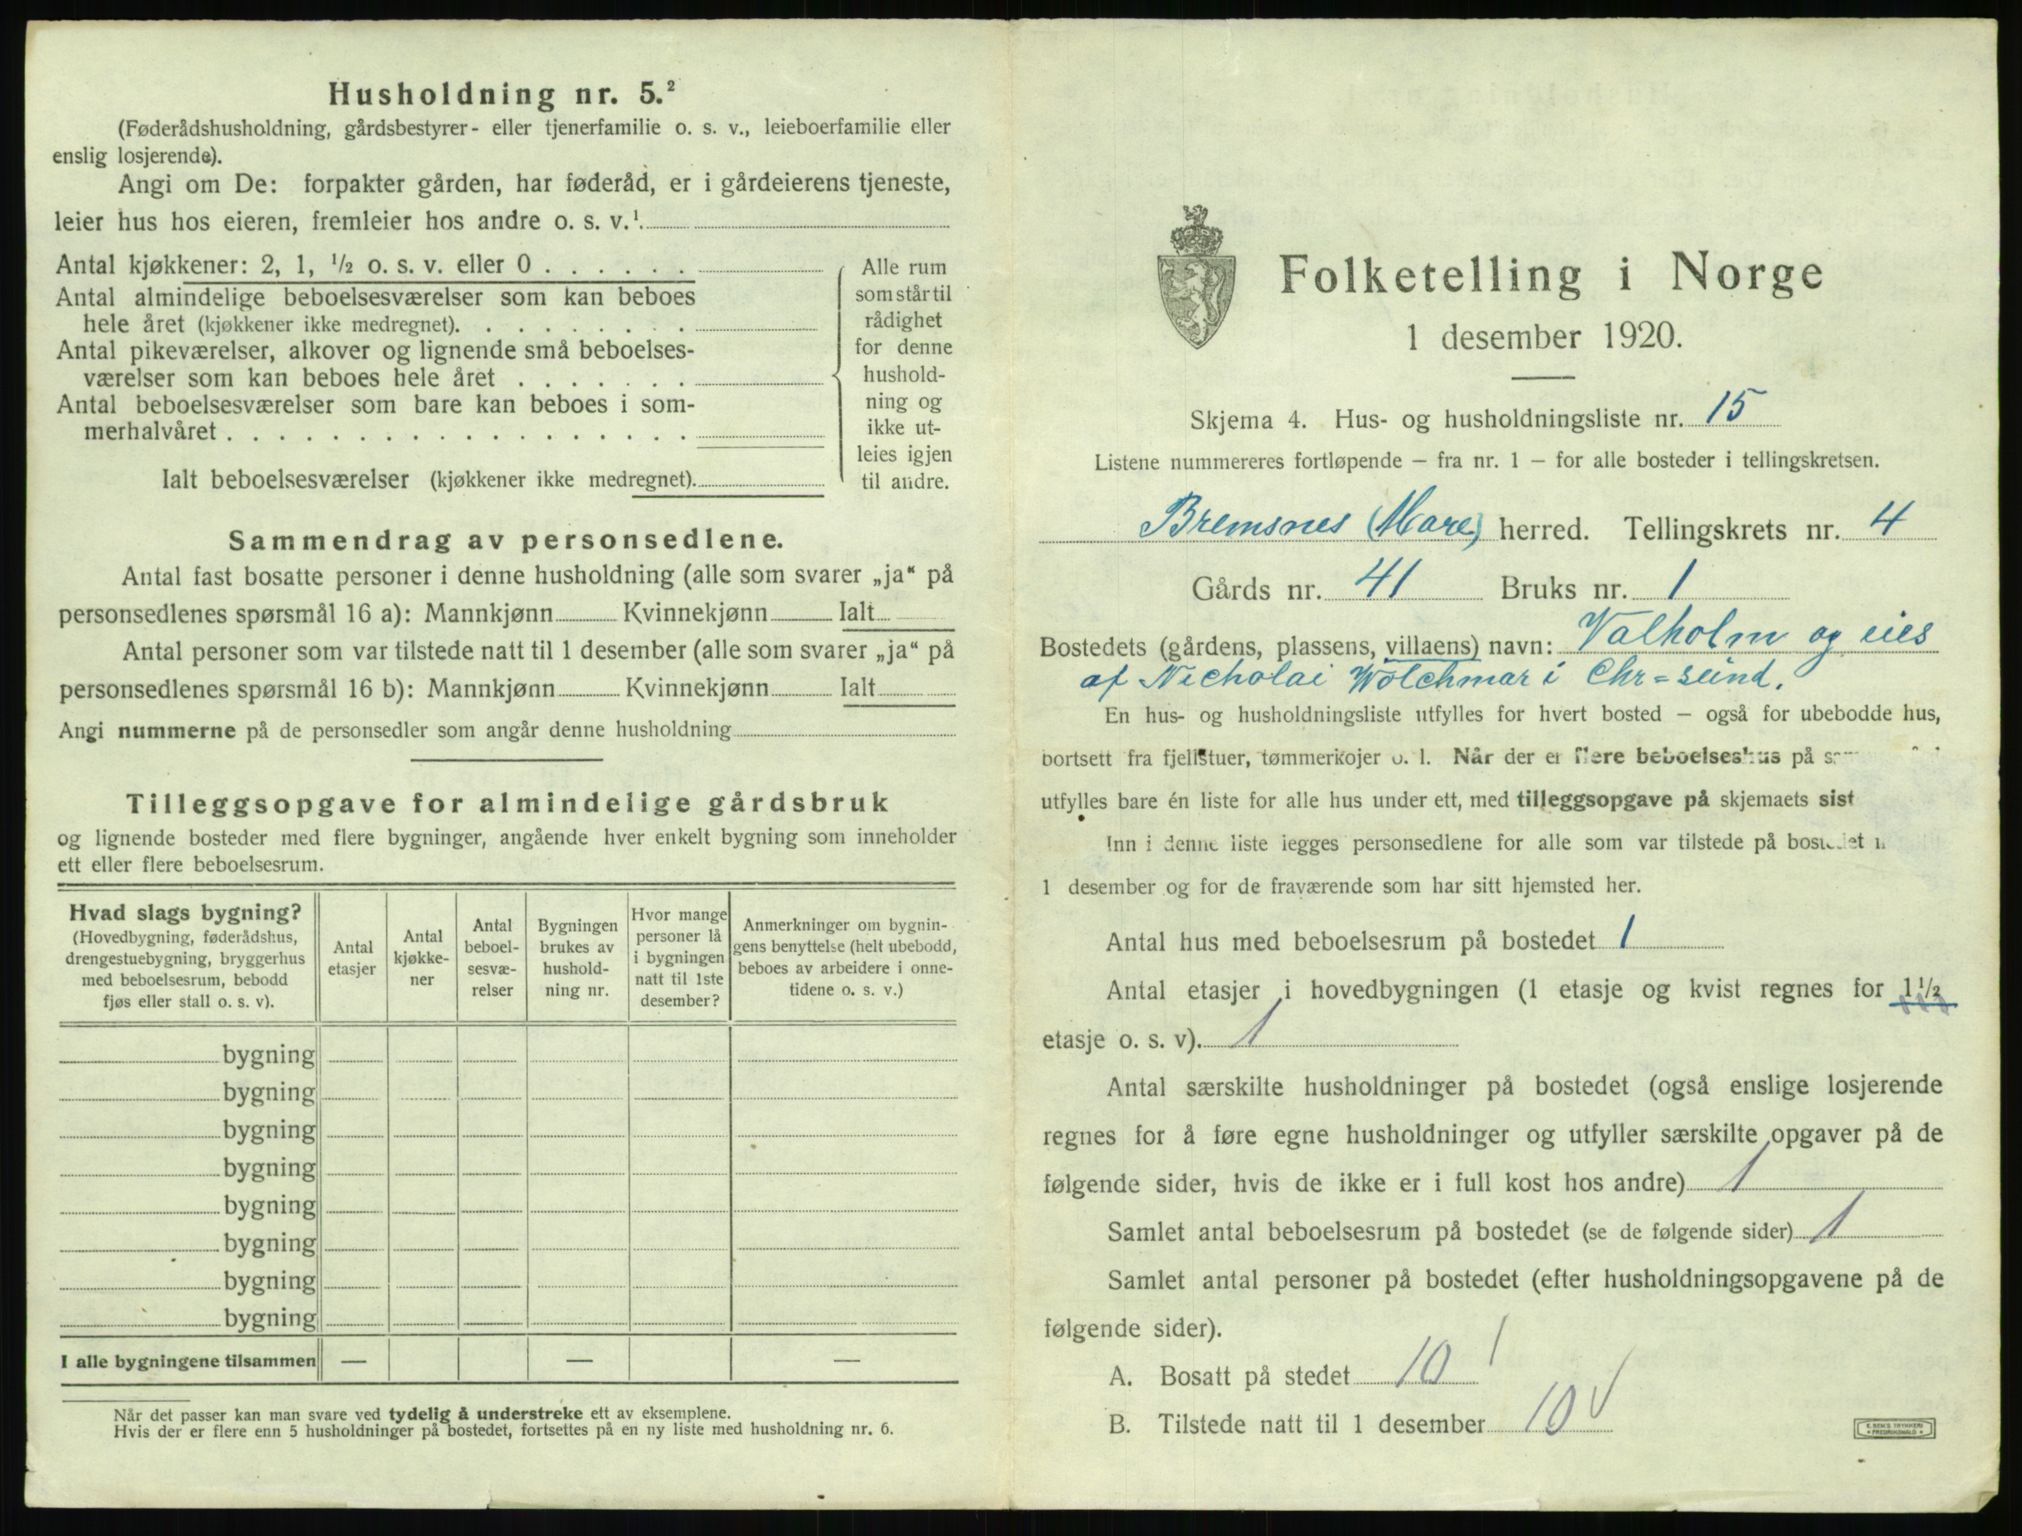 Husholdning nr. 5.²
(Føderådshusholdning, gårdsbestyrer- eller tjenerfamilie o. s. v., leieboerfamilie eller
enslig losjerende).
Angi om De: forpakter gården, har føderåd, er i gårdeierens tjeneste,
leier hus hos eieren, fremleier hos andre o. s. v.¹.
Antal kjøkkener: 2, 1, ½ o. s. v. eller 0 . . . . . .
Antal almindelige beboelsesværelser som kan beboes
hele året (kjøkkener ikke medregnet). . . . . . . . .
Antal pikeværelser, alkover og lignende små beboelses-
værelser som kan beboes hele året . . . . . . .
Antal beboelsesværelser som bare kan beboes i som-
merhalvåret . . . . . . . . . . . . . . . . . .
Ialt beboelsesværelser (kjøkkener ikke medregnet).
Alle rum
som står til
rådighet
for denne
hushold-
ning og
ikke ut-
leies igjen
til andre.
Sammendrag av personsedlene.
Antal fast bosatte personer i denne husholdning (alle som svarer „ja“ på
personsedlenes spørsmål 16 a): Mannkjønn Kvinnekjønn Ialt
Antal personer som var tilstede natt til 1 desember (alle som svarer „ja“ på
personsedlenes spørsmål 16 b): Mannkjønn Kvinnekjønn Ialt
Angi nummerne på de personsedler som angår denne husholdning
Tilleggsopgave for almindelige gårdsbruk
og lignende bosteder med flere bygninger, angående hver enkelt bygning som inneholder
ett eller flere beboelsesrum.
Hvad slags bygning?
(Hovedbygning, føderådshus,
drengestuebygning, bryggerhus
med beboelsesrum, bebodd
fjøs eller stall o. s. v).
Antal
etasjer
Antal
kjøkke-
ner
Antal
beboel-
sesvæ-
relser
Bygningen
brukes av
hushold-
ning nr.
Hvor mange
personer lå
i bygningen
natt til 1ste
desember?
Anmerkninger om bygnin-
gens benyttelse (helt ubebodd,
beboes av arbeidere i onne-
tidene o. s. v.)
bygning
bygning
bygning
bygning
bygning
bygning
bygning
bygning
I alle bygningene tilsammen — — —
Når det passer kan man svare ved tydelig å understreke ett av eksemplene.
Hvis der er flere enn 5 husholdninger på bostedet, fortsettes på en ny liste med husholdning nr. 6.
Folketelling i Norge
1 desember 1920.
Skjema 4. Hus- og husholdningsliste nr. 15
Listene nummereres fortløpende — fra nr. 1 — for alle bosteder i tellingskretsen.
Bremsnes (Mare) herred. Tellingskrets nr. 4
Gårds nr. 41 Bruks nr. 1
Bostedets (gårdens, plassens, villaens) navn: Valholm og eies
af Nicholai Wolchmar i Chr=sund.
En hus- og husholdningsliste utfylles for hvert bosted — også for ubebodde hus,
bortsett fra fjellstuer, tømmerkojer o. l. Når der er flere beboelseshus på
utfylles bare én liste for alle hus under ett, med tilleggsopgave på skjemaets sist
Inn i denne liste legges personsedlene for alle som var tilstede på bostedet n
1 desember og for de fraværende som har sitt hjemsted her.
Antal hus med beboelsesrum på bostedet 1
Antal etasjer i hovedbygningen (1 etasje og kvist regnes for 1½
etasje o. s. v). 1
Antal særskilte husholdninger på bostedet (også enslige losjerende
regnes for å føre egne husholdninger og utfyller særskilte opgaver på de
følgende sider, hvis de ikke er i full kost hos andre) 1
Samlet antal beboelsesrum på bostedet (se de følgende sider) 1
Samlet antal personer på bostedet (efter husholdningsopgavene på de
følgende sider).
A. Bosatt på stedet 10
B. Tilstede natt til 1 desember 10
E. SEM'S TRYKKERI
FREDRIKSHALD